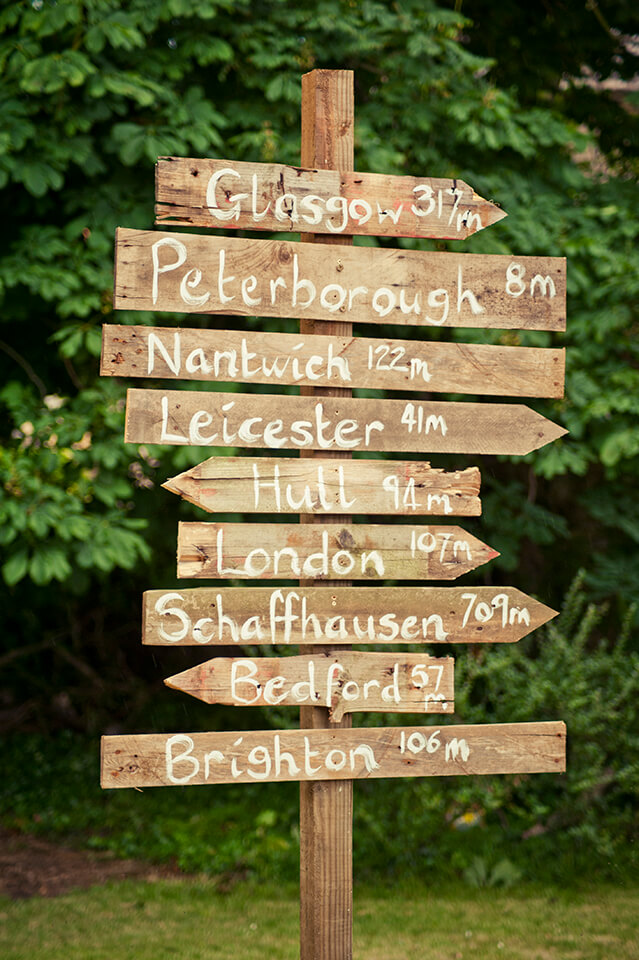 Glasgow 317m
Peterborough 8m
Nantwich 122m
Leicester 41m
Hull 94m
London 107m
Schaffhausen 709m
Bedford 57m
Brighton 106m